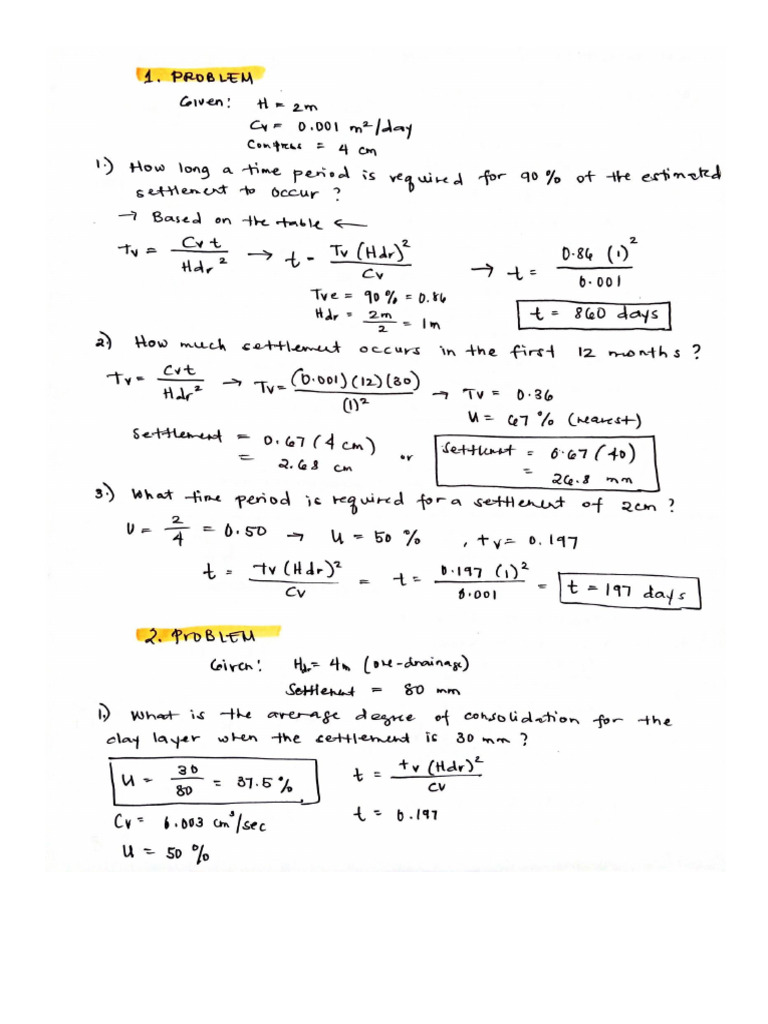 1. PROBLEM
Given: H = 2m
Cv = 0.001 m²/day
= 4 cm
1.) How long a time period is required for 90% of the estimated
settlement to occur?
→ Based on the table ←
Tv = Cv t / Hdr² → t = Tv (Hdr)² / Cv → t = 0.86 (1)² / 0.001
Tve = 90% = 0.86
Hdr = 2m / 2 = 1m
t = 860 days
2) How much settlement occurs in the first 12 months?
Tv = Cvt / Hdr² → Tv = (0.001)(12)(30) / (1)² → Tv = 0.36
U = 67% (nearest)
Settlement = 0.67 (4 cm) or Settlement = 0.67 (40)
= 2.68 cm = 26.8 mm
3.) What time period is required for a settlement of 2cm?
U = 2 / 4 = 0.50 → U = 50%, tv = 0.197
t = tv (Hdr)² / Cv = t = 0.197 (1)² / 0.001 = t = 197 days
2. PROBLEM
Given: Hdr = 4m (one-drainage)
Settlement = 80 mm
1.) What is the average degree of consolidation for the
clay layer when the settlement is 30 mm?
U = 30 / 80 = 37.5% t = tv (Hdr)² / Cv
Cv = 0.003 cm³/sec t = 0.197
U = 50%